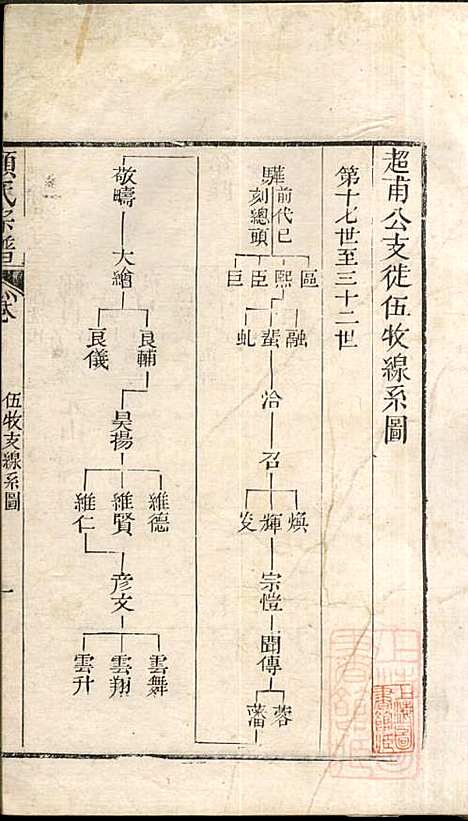 超甫公支徙伍牧線系圖
第十七世至三十二世
驊
前代已
刻總頭
區 熙 臣 巨
融 蜚 虬
洽
召
煥 輝 发
宗愷
聞傳
蓉 藩
敬疇
大繪
良輔 良儀
昊揚
維德 維賢 維仁
彥文
雲舞 雲翔 雲升
氏宗譜
伍牧支線系圖
一
上海圖
書館藏